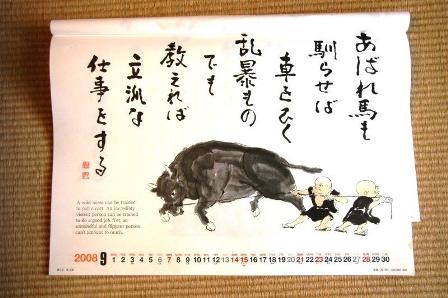 あばれ馬も
馴らせば
車をひく
乱暴もの
でも
教えれば
立派な
仕事をする
A wild horse can be trained
to pull a cart. An incredibly
violent person can be trained
to do a good job. Yet, an
unmindful and flippant person
can't amount to much.
2008 9 1 2 3 4 5 6 7 8 9 10 11 12 13 14 15 16 17 18 19 20 21 22 23 24 25 26 27 28 29 30